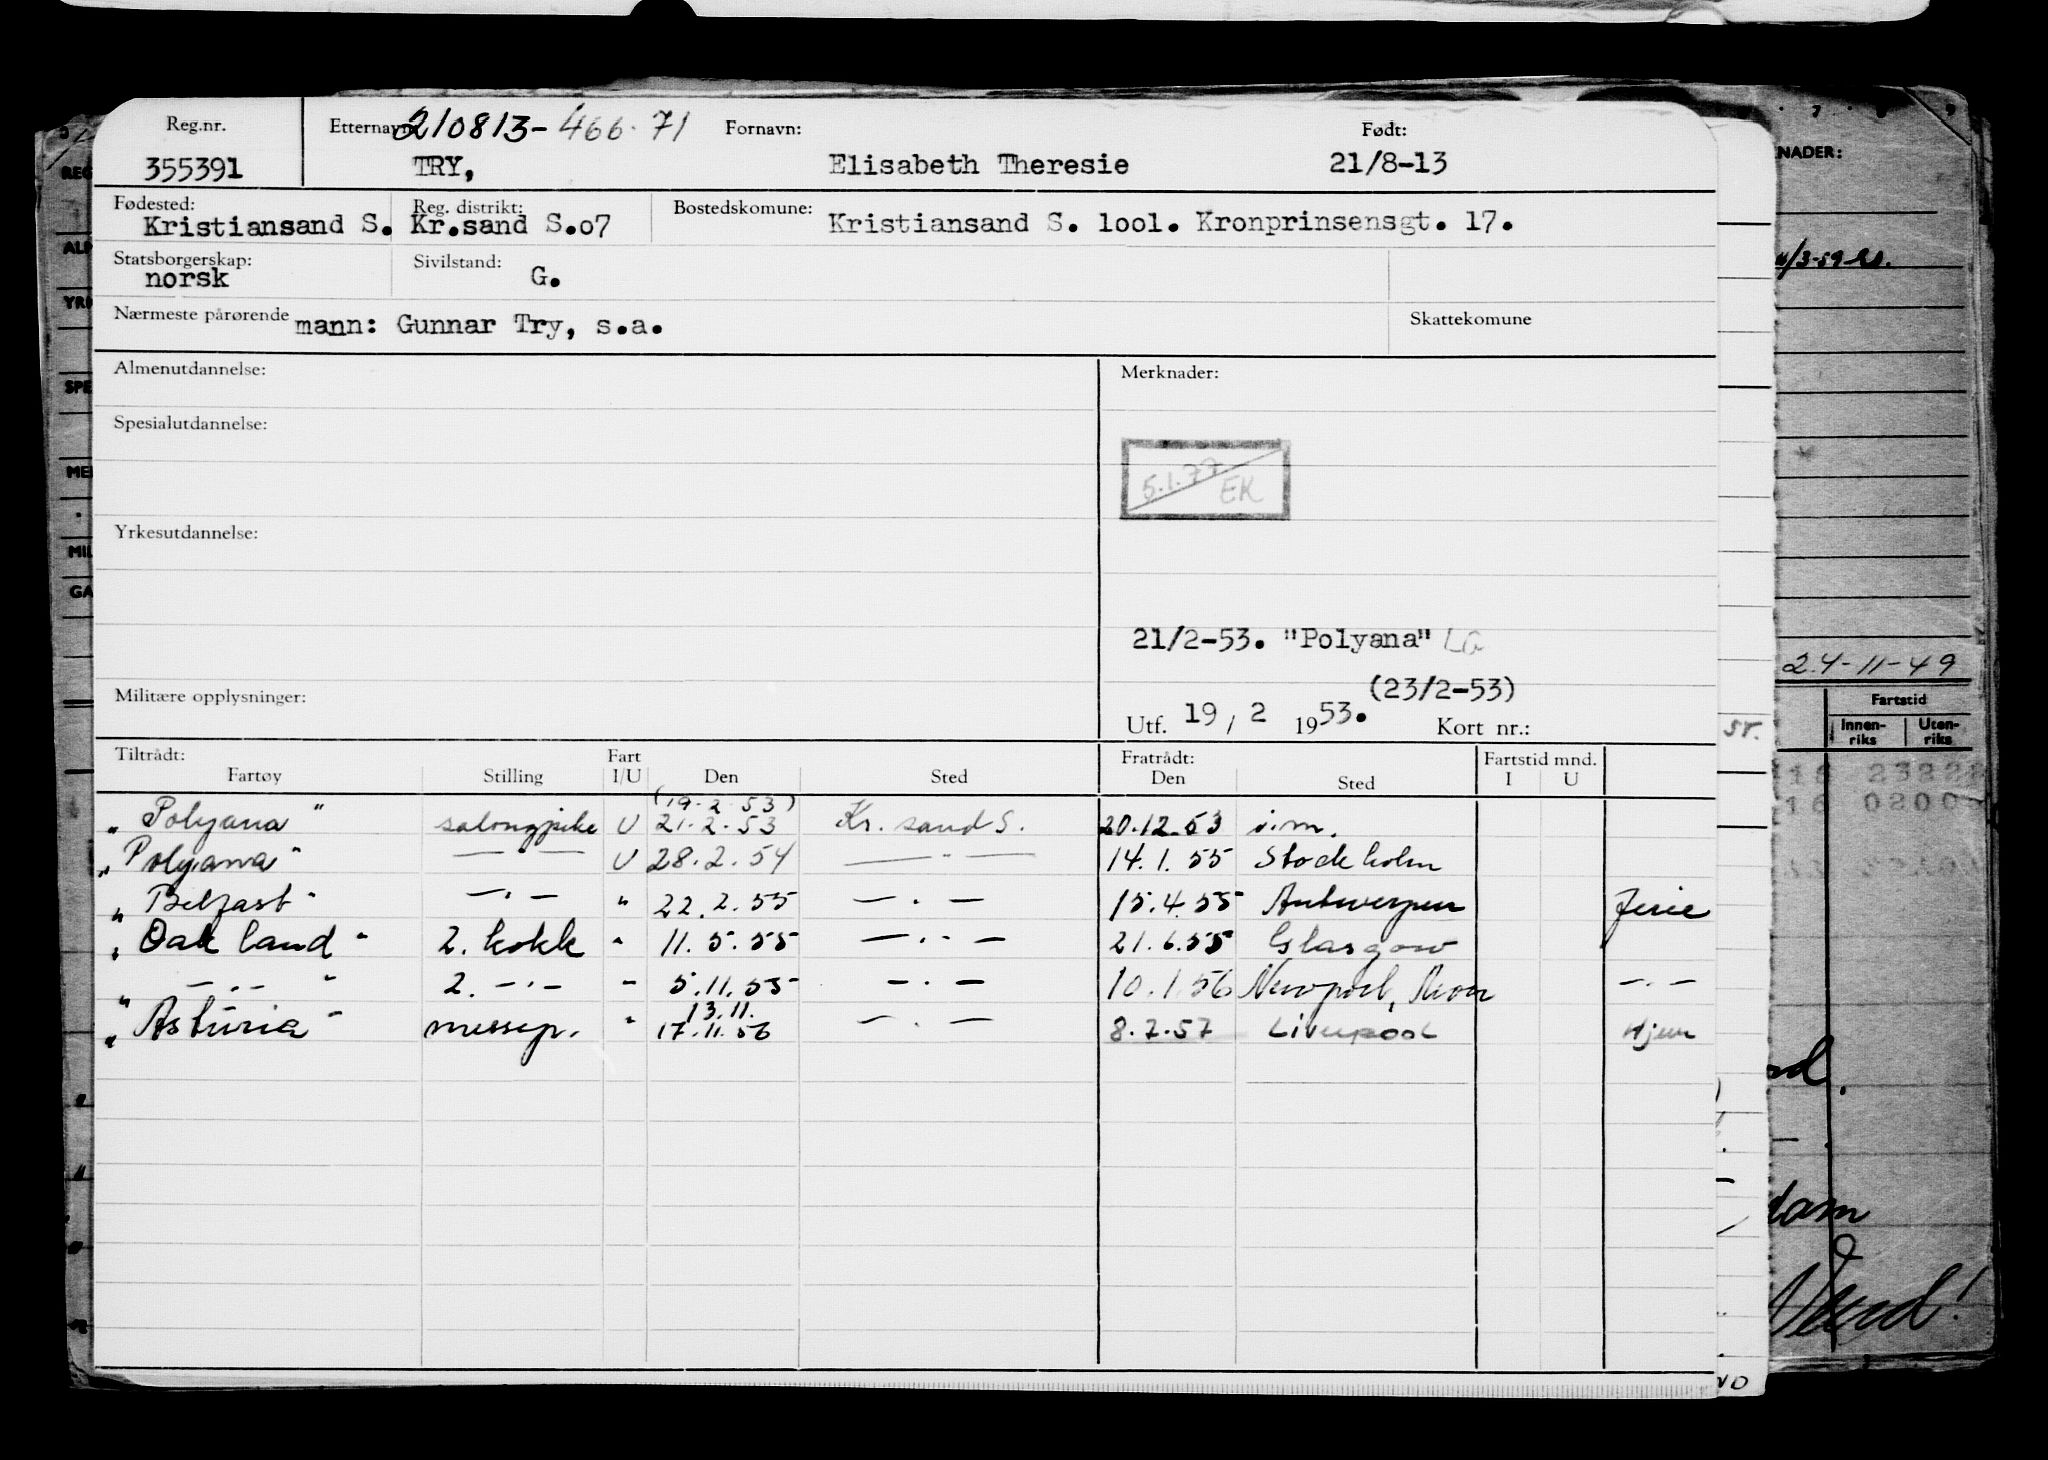 Reg.nr. Etternavn 210813-466.71 Fornavn: Født:
355391 TRY, Elisabeth Theresie 21/8-13
Fødested: Reg. distrikt: Bostedskomune:
Kristiansand S. Kr.sand S.o7 Kristiansand S. lool. Kronprinsensgt. 17.
Statsborgerskap: Sivilstand:
norsk G.
Nærmeste pårørende mann: Gunnar Try, s.a. Skattekomune
Almenutdannelse: Merknader:
Spesialutdannelse:
5.1.77 EK
Yrkesutdannelse:
21/2-53. "Polyana" LG
Militære opplysninger: (23/2-53)
Utf. 19/2 1953. Kort nr.:
Tiltrådt: Fart Fratrådt: Fartstid mnd.
Fartøy Stilling I/U Den Sted Den Sted I U
(19.2.53)
"Polyana" salongpike U 21.2.53 Kr. sand S. 20.12.53 i.m.
"Polyana" — " — U 28.2.54 — " — 14.1.55 Stockholm
"Belfast" — " — " 22.2.55 — " — 15.4.55 Antwerpen ferie
"Oakland" 2. kokk " 11.5.55 — " — 21.6.55 Glasgow
" — " — " 2. — " — " 5.11.55 — " — 10.1.56 Newport, Mon — " —
13.11.
"Asturia" messep. " 17.11.56 — " — 8.7.57 Liverpool Hjem
NADER:
24-11-49
Fartstid
Innen-riks Uten-riks